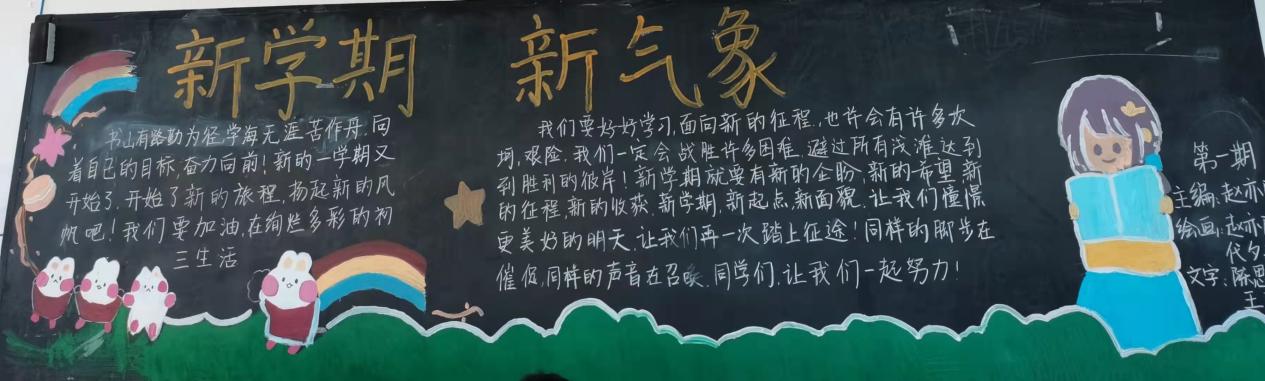 新学期 新气象
书山有路勤为径,学海无涯苦作舟,向
着自己的目标,奋力向前!新的一学期又
开始了,开始了新的旅程,扬起新的风
帆吧!我们要加油,在绚烂多彩的初
三生活
我们要好好学习,面向新的征程,也许会有许多坎
坷,艰险,我们一定会战胜许多困难,避过所有浅滩达到
到胜利的彼岸!新学期就要有新的企盼,新的希望,新
的征程,新的收获,新学期,新起点,新面貌,让我们憧憬
更美好的明天,让我们再一次踏上征途!同样的脚步在
催促,同样的声音在召唤,同学们,让我们一起努力!
第一期
主编:赵亦
绘画:赵亦
代夕
文字:陈思
王